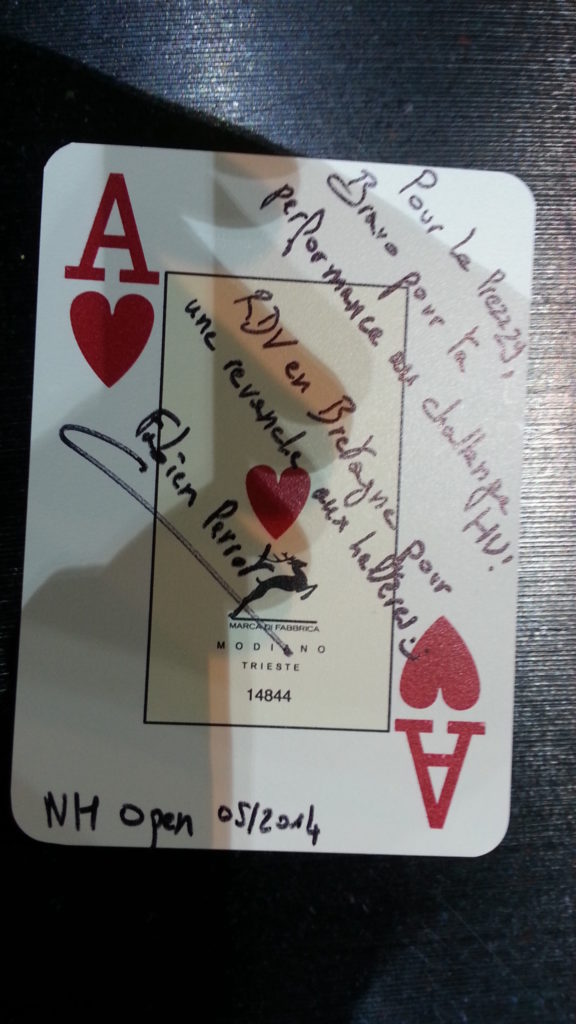 A
Pour La Prezz29,
Bravo pour ta
performance au challenge HU!
RDV en Bretagne pour
une revanche aux haltères :)
Fabien Perrot
MARCA DI FABBRICA
MODIANO
TRIESTE
14844
A
NH Open 05/2014